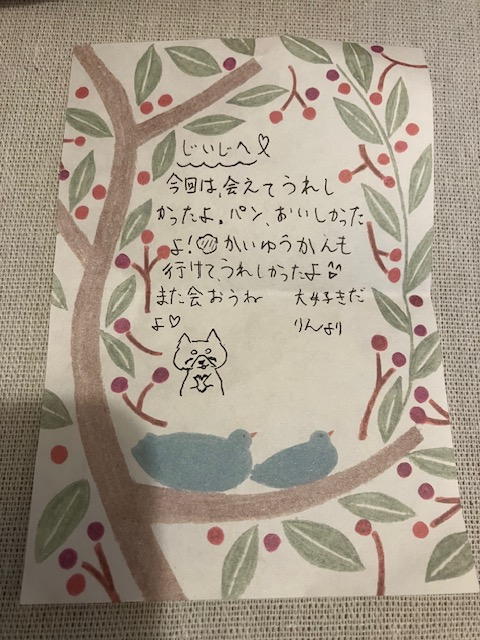 じいじへ♡
今回は、会えてうれし
かったよ。パン、おいしかった
よ!かいゆうかんも
行けてうれしかったよ
また会おうね 大好きだ
よ♡ りんより